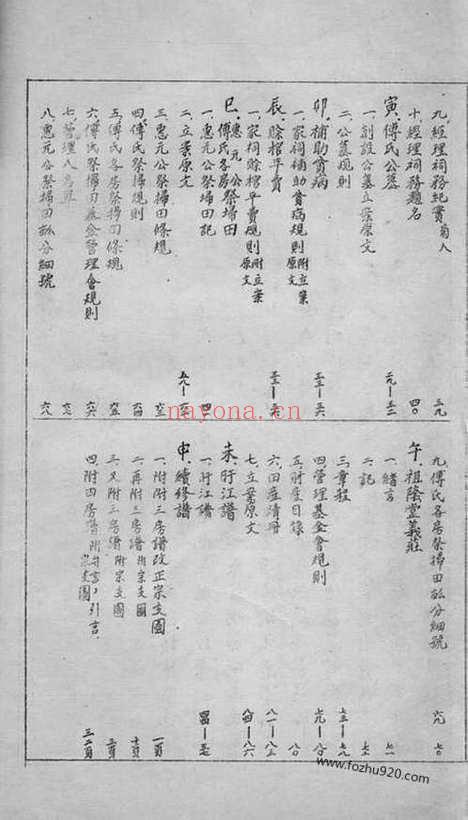 九、經理祠務紀實
十、經理祠務題名 四〇
寅、傅氏公墓
一、創設公墓立案原文
二、公墓規則
卯、補助貧病
一、家祠補助貧病規則附立案原文
辰、賒棺平賣
一、家祠賒棺平賣規則附立案原文
巳、惠元公傅氏各房祭掃田
一、惠元公祭掃田記
二、立案原文
三、惠元公祭掃田條規
四、傅氏祭掃規則
五、傅氏各房祭掃田條規
六、傅氏祭掃田基金管理會規則
七、管理人名單
八、惠元公祭掃田畝分細號 六八
九、傅氏各房祭掃田畝分細號 六九 七〇
午、祖蔭堂義莊
一、緒言 七一
二、記
三、章程
四、管理基金會規則
五、財產目錄 八〇
六、田產清冊 八一—八三
七、立案原文 八四—八六
未、盱江譜
一、盱江譜
申、續修譜
一、附附三房譜改正宗支圖 一頁
二、再附三房譜附宗支圖
三、又附三房譜附宗支圖
四、附四房譜附弁言、引言、宗支圖 三二頁
nayona.cn
www.fozhu920.com